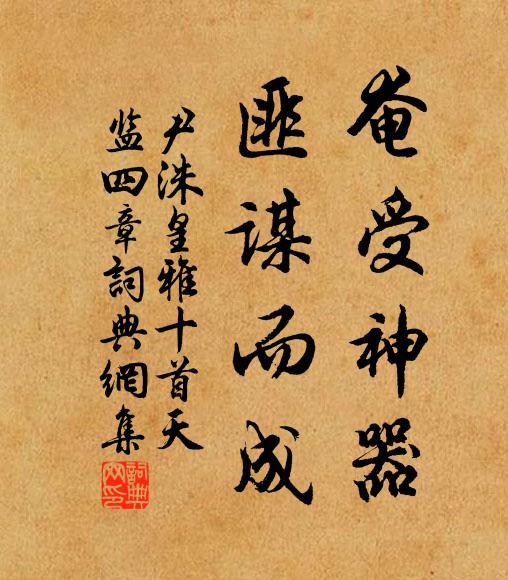 奄受神器
匪谋而成
尹洙皇雅十首天
监四章詞典網集
詞典網印